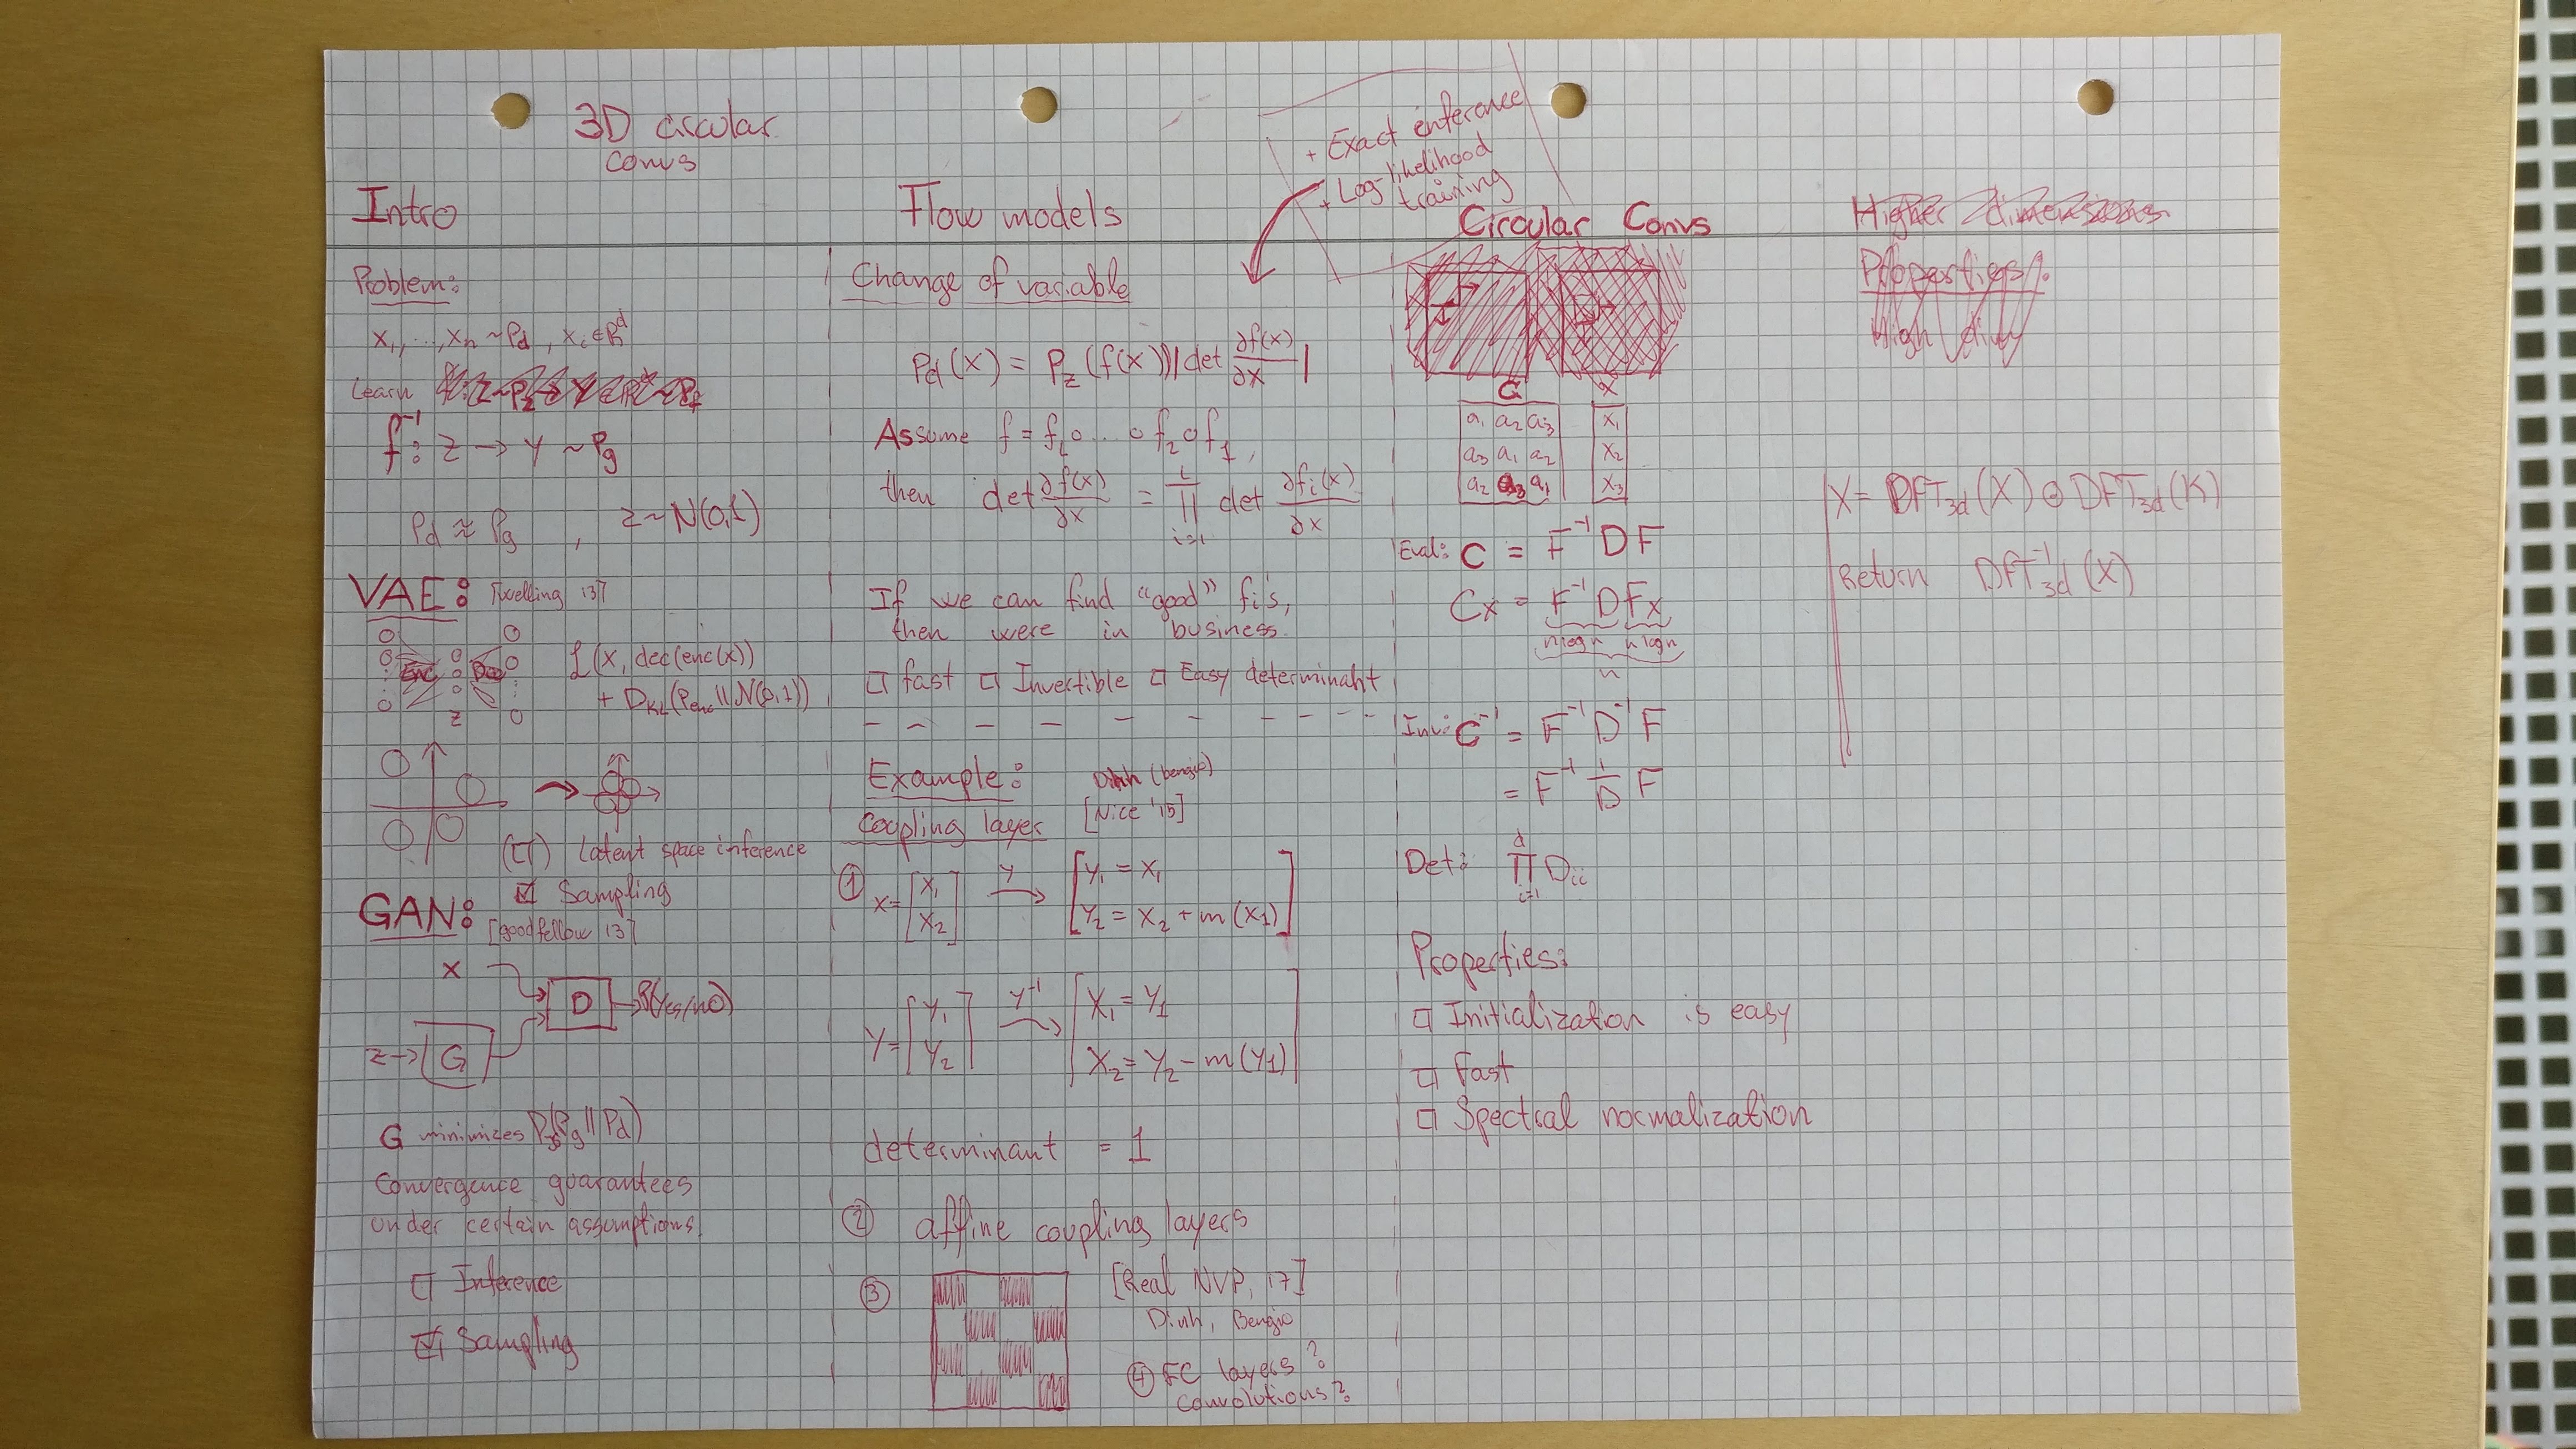 3D circular
convs
Intro
Problem:
x₁, ..., xₙ ~ Pd, xᵢ ∈ ℝᵈ
Learn
f⁻¹: z → y ~ Pg
Pd ≈ Pg , z ~ N(0,1)
VAE: [welling 13]
Enc Dec
z
L(x, dec(enc(x))
+ D_KL(Penc || N(0,1))
(□) latent space inference
☑ Sampling
GAN:
[goodfellow 13]
x
D → P(yes/no)
z → G
G minimizes D(Pg || Pd)
Convergence guarantees
under certain assumptions
□ Inference
☑ Sampling
Flow models
+ Exact inference
+ Log-likelihood
training
Change of variable
Pd(x) = Pz(f(x))|det ∂f(x)/∂x|
Assume f = f_L ∘ ... ∘ f₂ ∘ f₁,
then det ∂f(x)/∂x = ∏_{i=1}^{L} det ∂fᵢ(x)/∂x
If we can find "good" fi's,
then were in business.
□ fast □ Invertible □ Easy determinant
Example: Dinh (bengio)
[Nice '15]
Coupling layer
① x = [x₁ x₂] →y [y₁ = x₁
y₂ = x₂ + m(x1)]
y = [y₁ y₂] →y⁻¹ [x₁ = y₁
x₂ = y₂ - m(y1)]
determinant = 1
② affine coupling layers
③ [Real NVP, 17]
Dinh, Bengio
④ FC layers?
convolutions?
Circular Convs
C x
a₁ a₂ a₃ x₁
a₃ a₁ a₂ x₂
a₂ a₃ a₁ x₃
Eval: C = F⁻¹ D F
Cx = F⁻¹ D F x
n log n n log n
n
Inv: C⁻¹ = F⁻¹ D⁻¹ F
= F⁻¹ 1/D F
Det: ∏_{i=1}^{d} Dᵢᵢ
Properties:
□ Initialization is easy
□ Fast
□ Spectral normalization
Higher dimensions
Properties:
High dim
X = DFT₃d(X) ⊙ DFT₃d(K)
Return DFT₃d⁻¹(X)